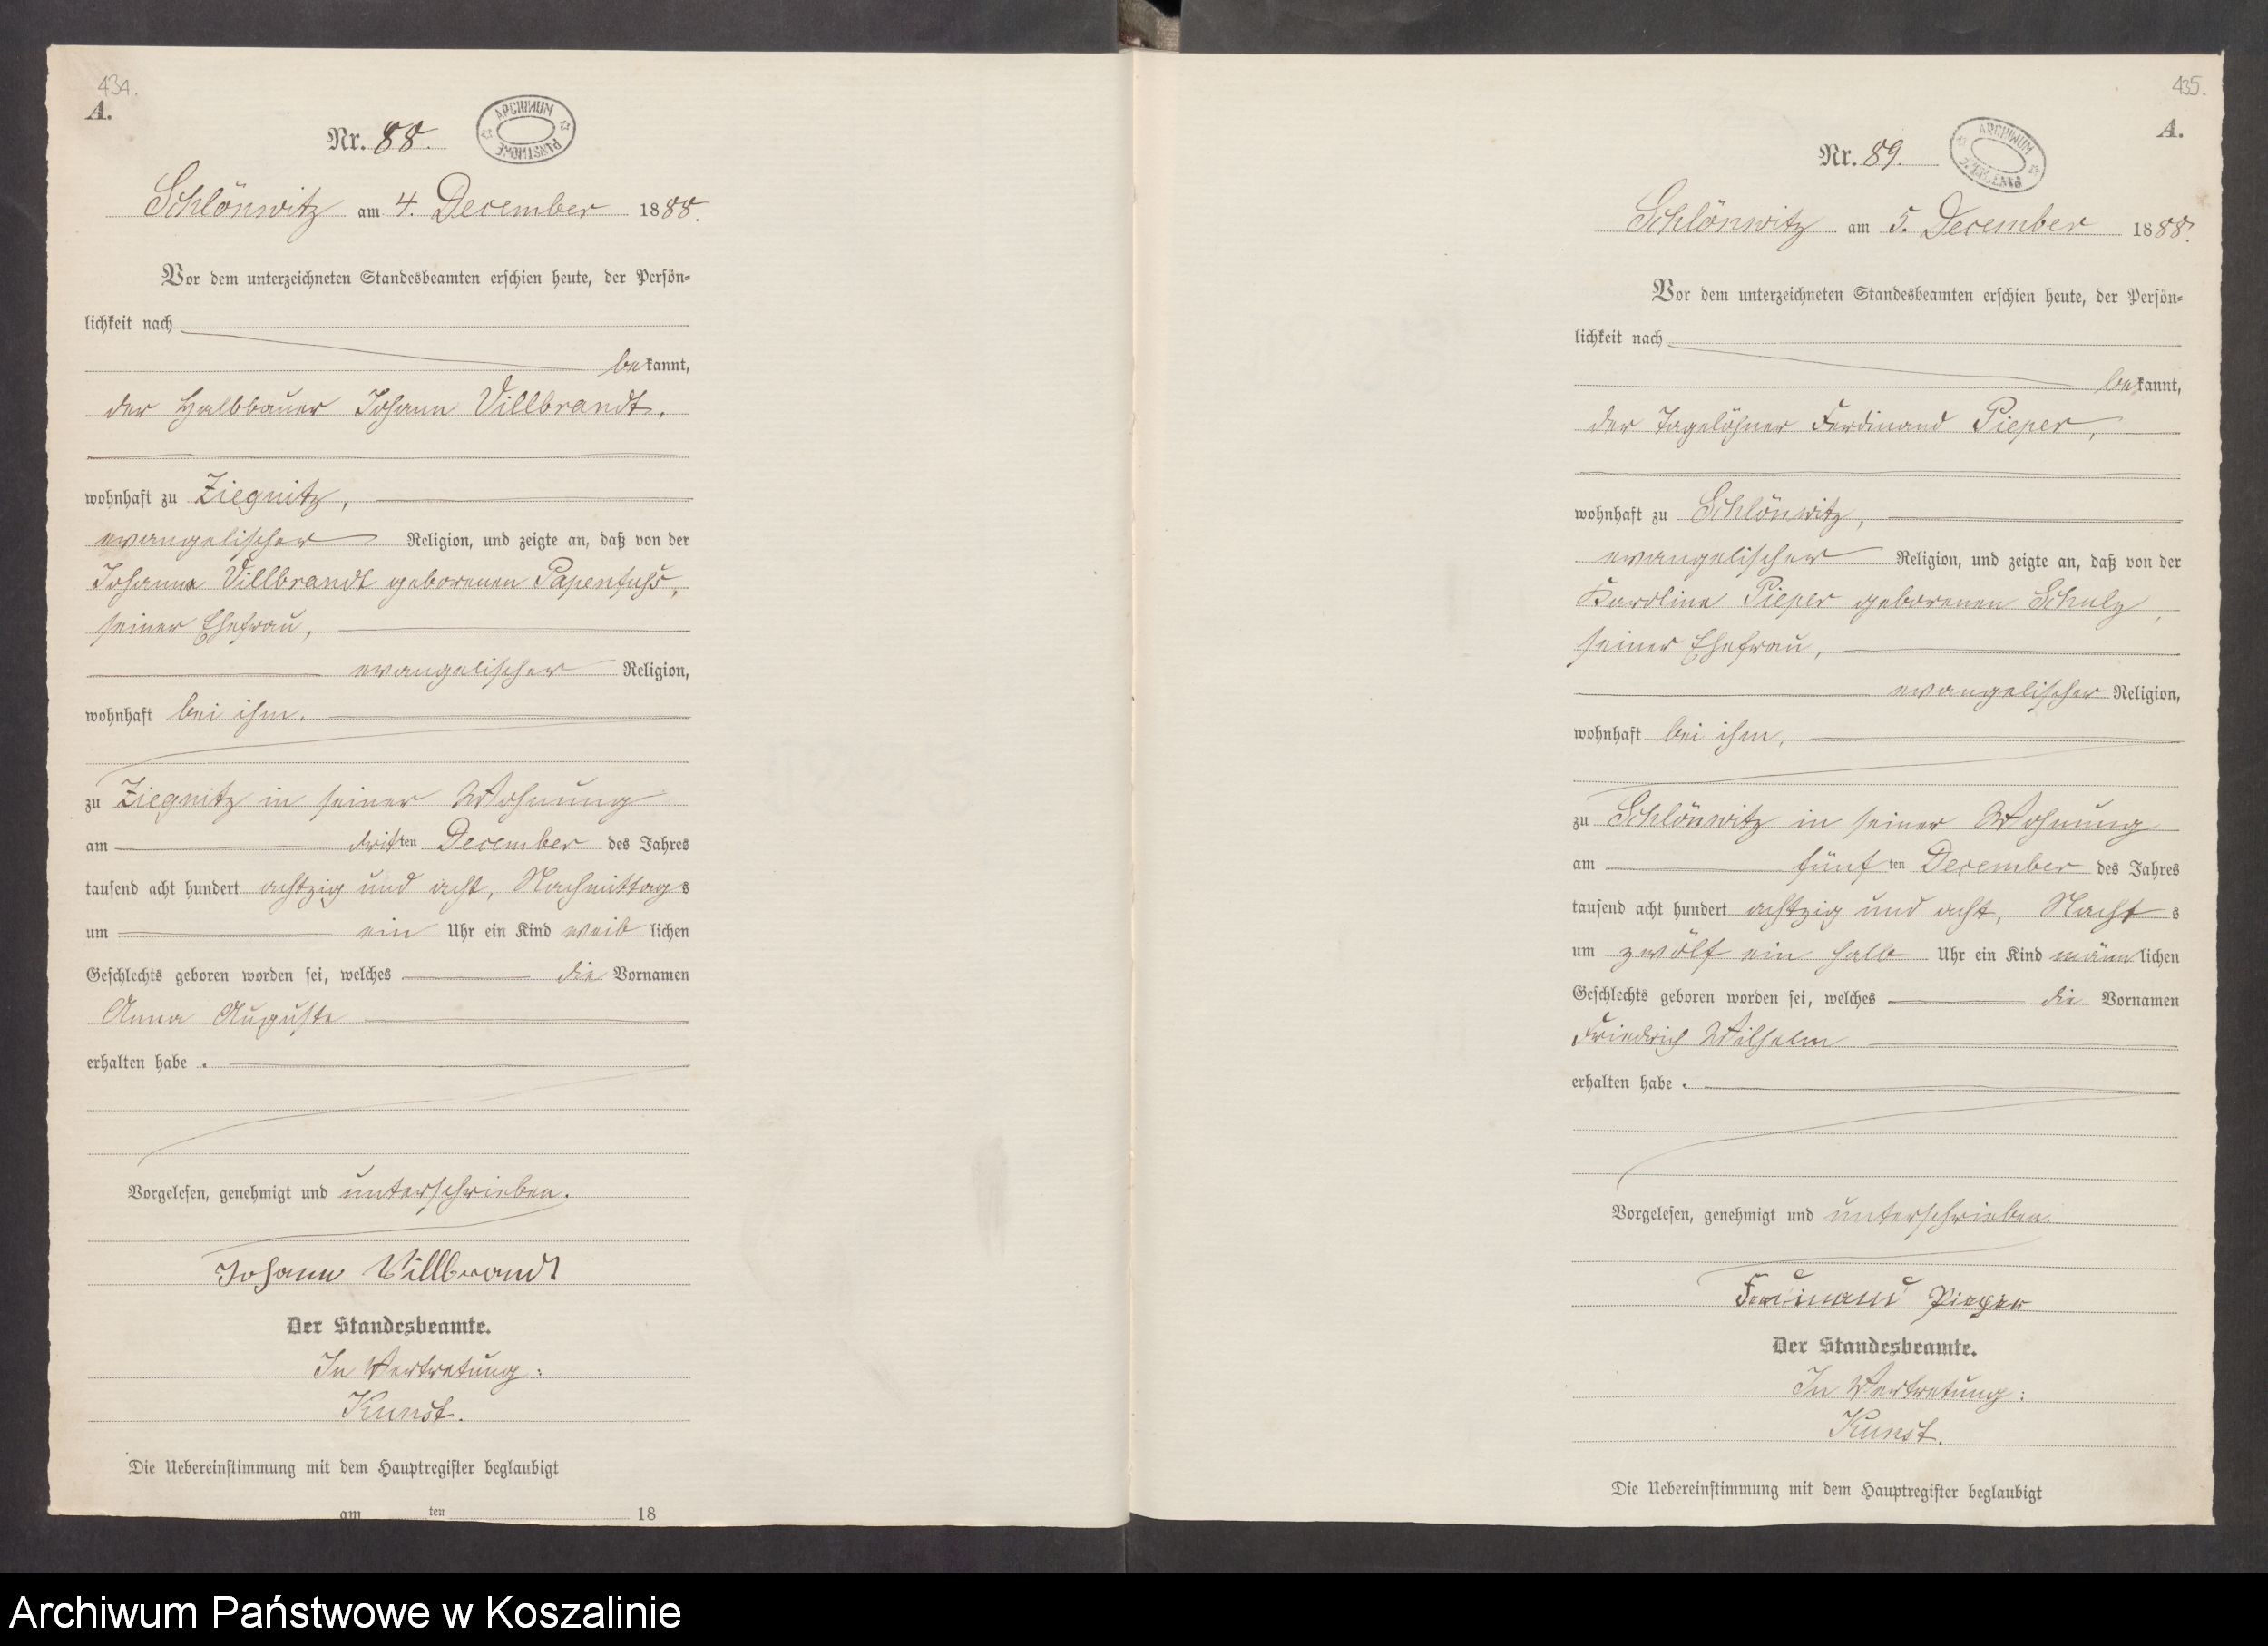 434.
A.
Nr. 88.
ARCHIWUM PAŃSTWOWE
Schlönwitz am 4. December 1888.
Vor dem unterzeichneten Standesbeamten erschien heute, der Persön-
lichkeit nach
bekannt,
der Halbbauer Johann Villbrandt,
wohnhaft zu Ziegnitz,
evangelischer Religion, und zeigte an, daß von der
Johanna Villbrandt geborenen Papenfuhs,
seiner Ehefrau,
evangelischer Religion,
wohnhaft bei ihm.
zu Ziegnitz in seiner Wohnung
am dritten December des Jahres
tausend acht hundert achtzig und acht, Nachmittags
um ein Uhr ein Kind weiblichen
Geschlechts geboren worden sei, welches die Vornamen
Anna Auguste
erhalten habe.
Vorgelesen, genehmigt und unterschrieben.
Johann Villbrandt
Der Standesbeamte.
In Vertretung:
Kunst.
Die Uebereinstimmung mit dem Hauptregister beglaubigt
am ten 18
435.
A.
Nr. 89.
ARCHIWUM
Schlönwitz am 5. December 1888.
Vor dem unterzeichneten Standesbeamten erschien heute, der Persön-
lichkeit nach
bekannt,
der Tagelöhner Ferdinand Pieper,
wohnhaft zu Schlönwitz,
evangelischer Religion, und zeigte an, daß von der
Karoline Pieper geborenen Schulz,
seiner Ehefrau,
evangelischer Religion,
wohnhaft bei ihm,
zu Schlönwitz in seiner Wohnung
am fünften December des Jahres
tausend acht hundert achtzig und acht, Nachts
um zwölf ein halb Uhr ein Kind männlichen
Geschlechts geboren worden sei, welches die Vornamen
Friedrich Wilhelm
erhalten habe.
Vorgelesen, genehmigt und unterschrieben.
Ferdinand Pieper
Der Standesbeamte.
In Vertretung:
Kunst.
Die Uebereinstimmung mit dem Hauptregister beglaubigt
Archiwum Państwowe w Koszalinie